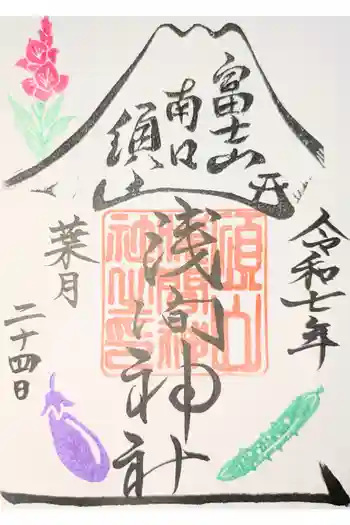 富士山
南口
須山
浅間神社
令和七年
葉月
二十四日
須山浅間神社之印